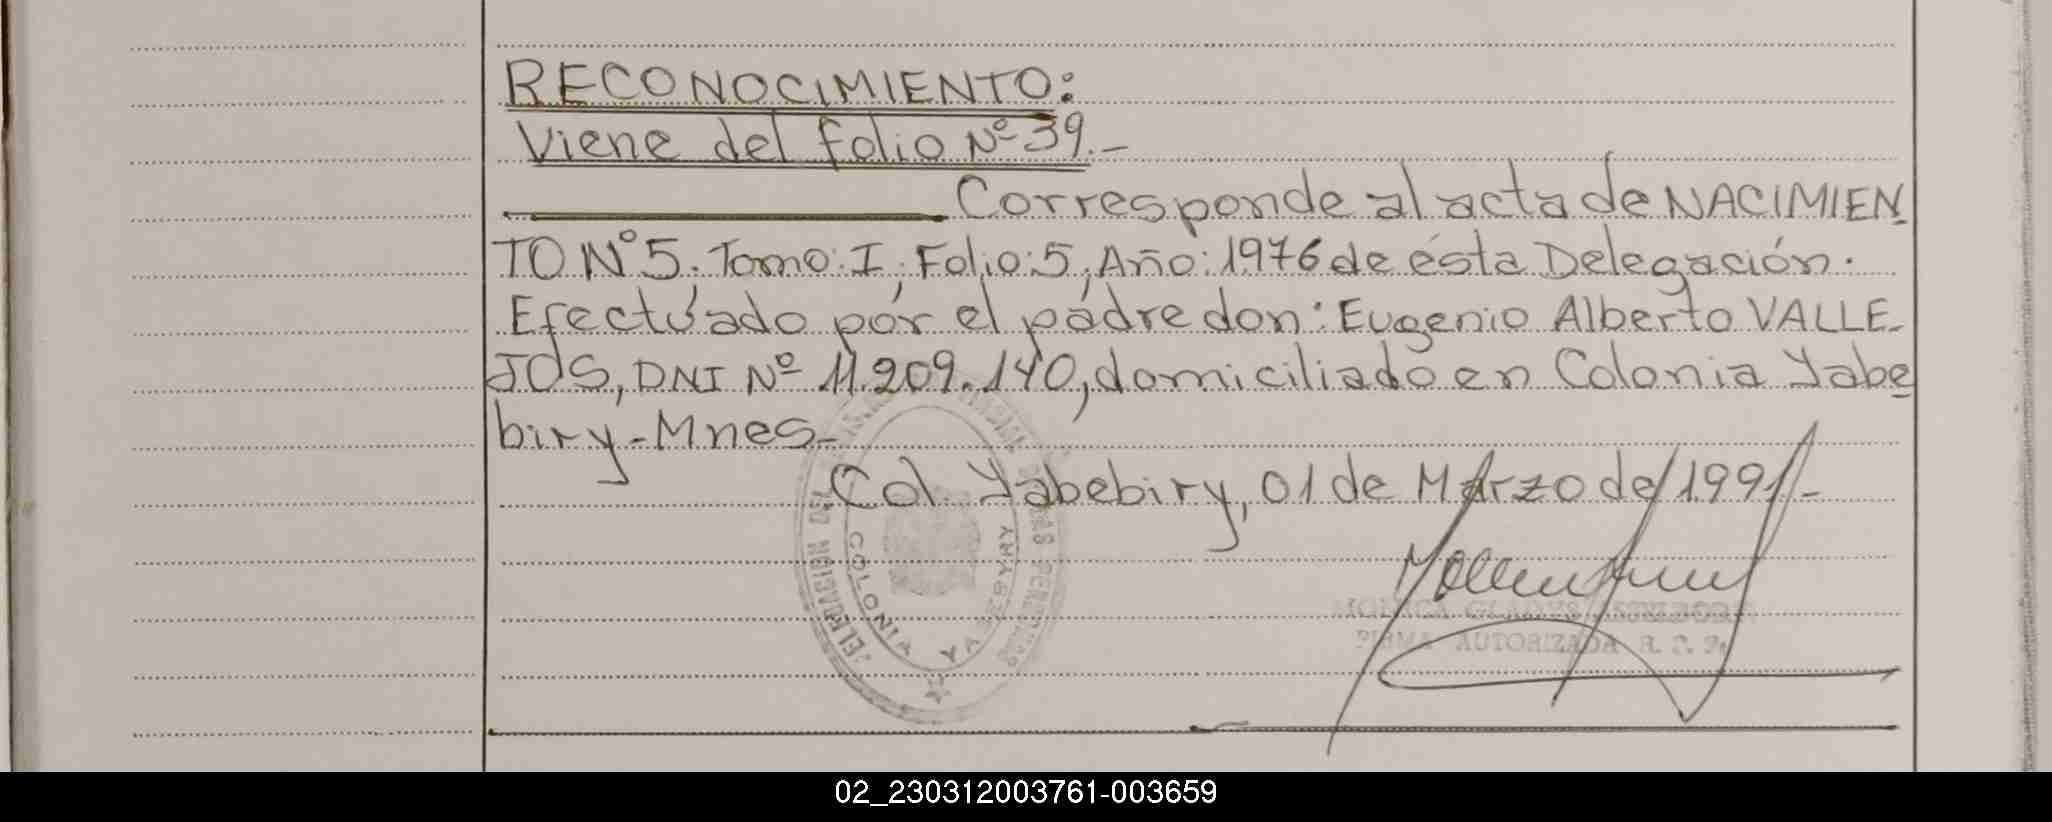 RECONOCIMIENTO:
Viene del folio Nº 39.-
Corresponde al acta de NACIMIEN-
TO Nº5, Tomo: I, Folio: 5, Año: 1976 de ésta Delegación.
Efectuado por el padre don: Eugenio Alberto VALLE-
JOS, DNI Nº 11.209.140, domiciliado en Colonia Yabe
biry-Mnes-
Col. Yabebiry, 01 de Marzo de 1991-
COLONIA
MONICA GLADYS
FIRMA AUTORIZADA R. C. P.
02_230312003761-003659